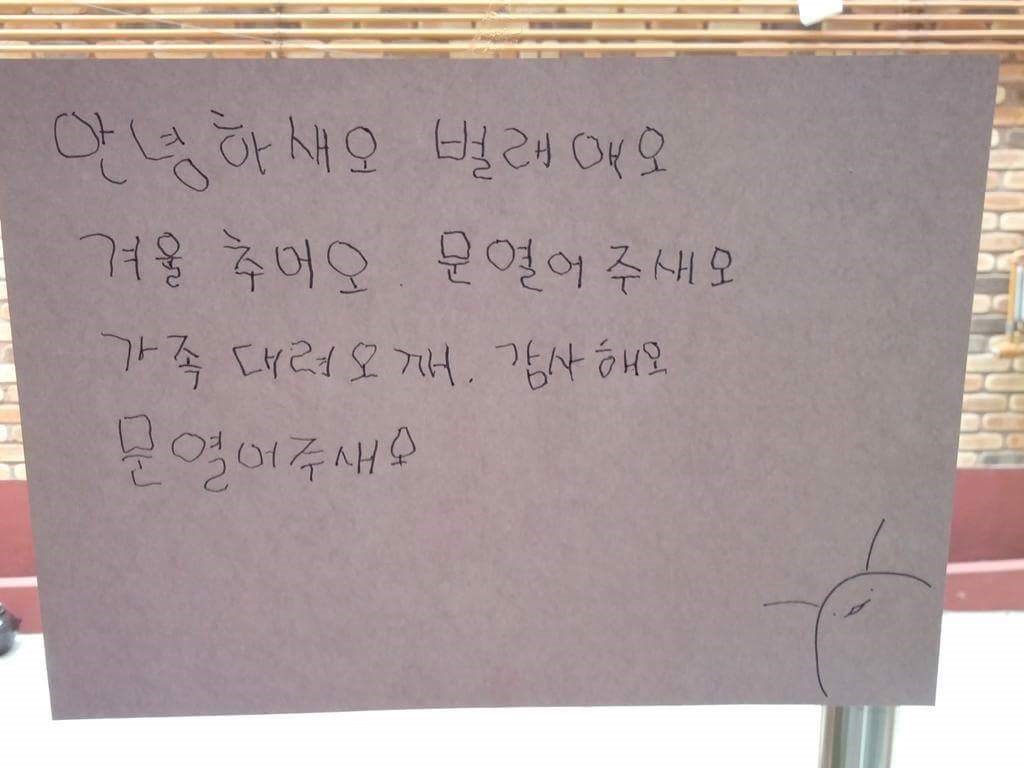 안녕하새오 벌래애오
겨울 추어오. 문열어주새오
가족 대려오께. 감사해오
문열어주새오